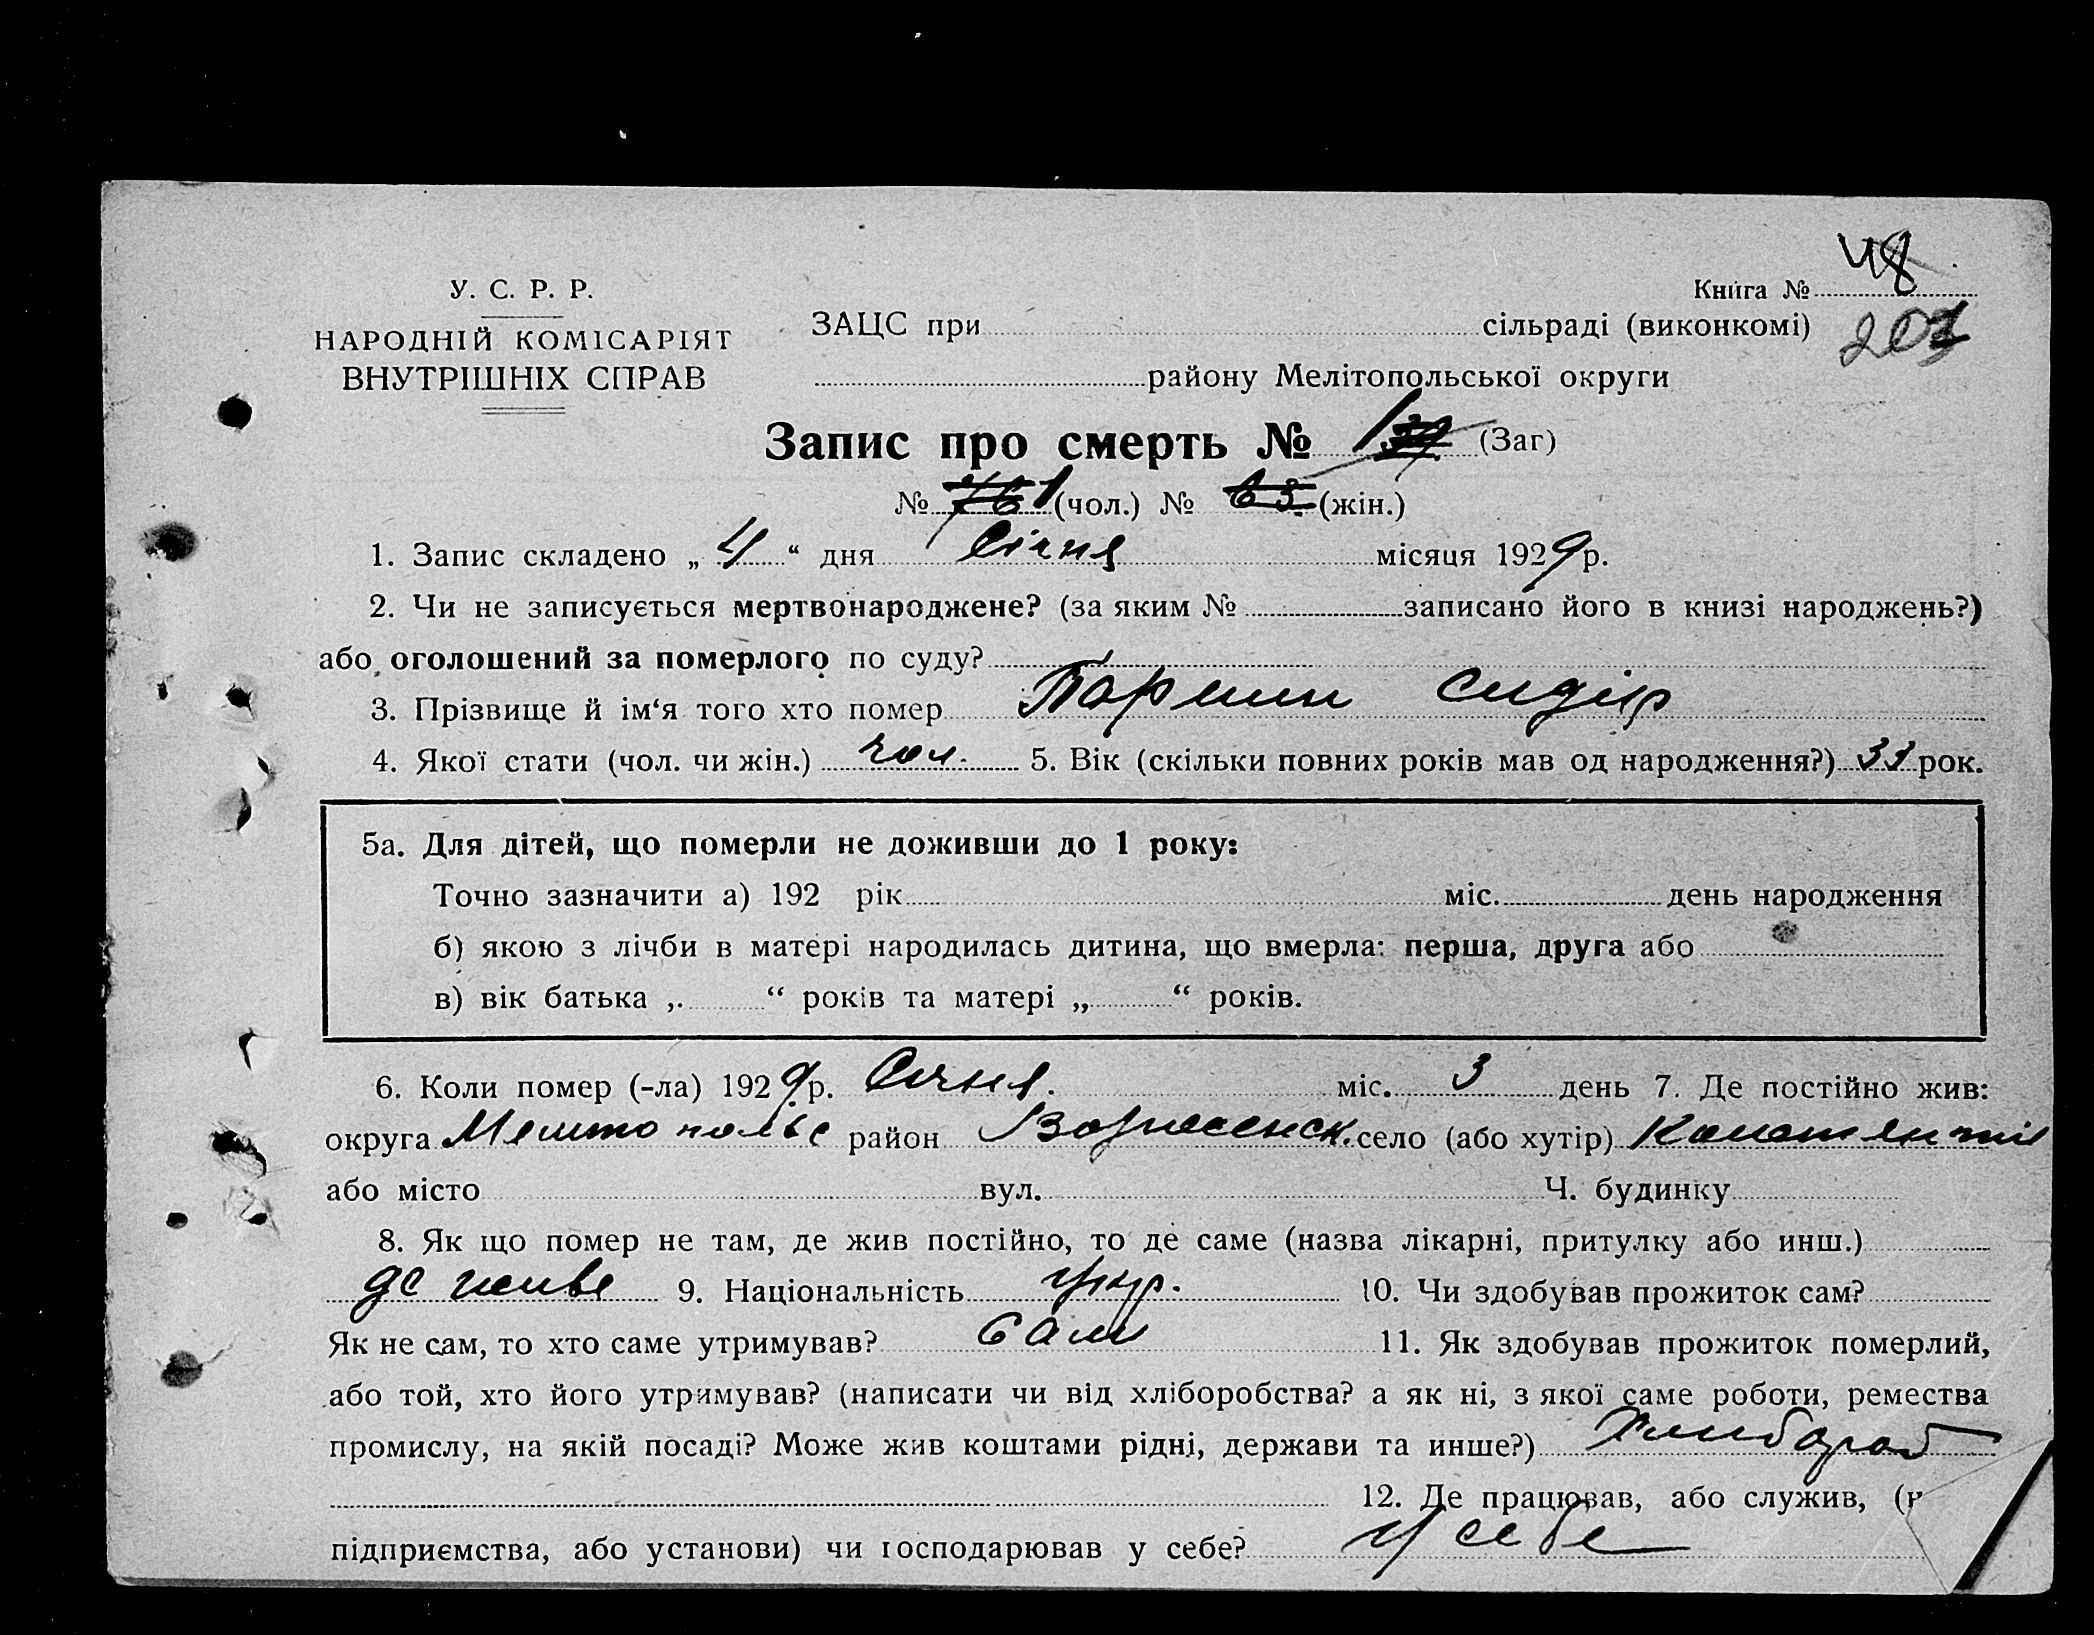 48
У. С. Р. Р.
Книга №
НАРОДНІЙ КОМІСАРІЯТ
ЗАЦС при сільраді (виконкомі)
ВНУТРІШНІХ СПРАВ
району Мелітопольської округи
Запис про смерть № 1 (Заг)
№ 76 1 (чол.) № 63 (жін.)
1. Запис складено „ 4 “ дня Січня місяця 1929 р.
2. Чи не записується мертвонароджене? (за яким № записано його в книзі народжень?)
або оголошений за померлого по суду?
3. Прізвище й ім‘я того хто помер Сидір
4. Якої стати (чол. чи жін.) чол. 5. Вік (скільки повних років мав од народження?) 33 рок.
5а. Для дітей, що померли не доживши до 1 року:
Точно зазначити а) 192 рік міс. день народження
б) якою з лічби в матері народилась дитина, що вмерла: перша, друга або
в) вік батька „ “ років та матері „ “ років.
6. Коли помер (-ла) 1929 р. Січня. міс. 3 день 7. Де постійно жив:
округа район село (або хутір)
або місто вул. Ч. будинку
8. Як що помер не там, де жив постійно, то де саме (назва лікарні, притулку або инш.)
де живе 9. Національність Укр. 10. Чи здобував прожиток сам?
Як не сам, то хто саме утримував? Сам 11. Як здобував прожиток померлий,
або той, хто його утримував? (написати чи від хліборобства? а як ні, з якої саме роботи, ремества
промислу, на якій посаді? Може жив коштами рідні, держави та инше?) Хлибороб
12. Де працював, або служив, (
підприємства, або установи) чи господарював у себе? У себе